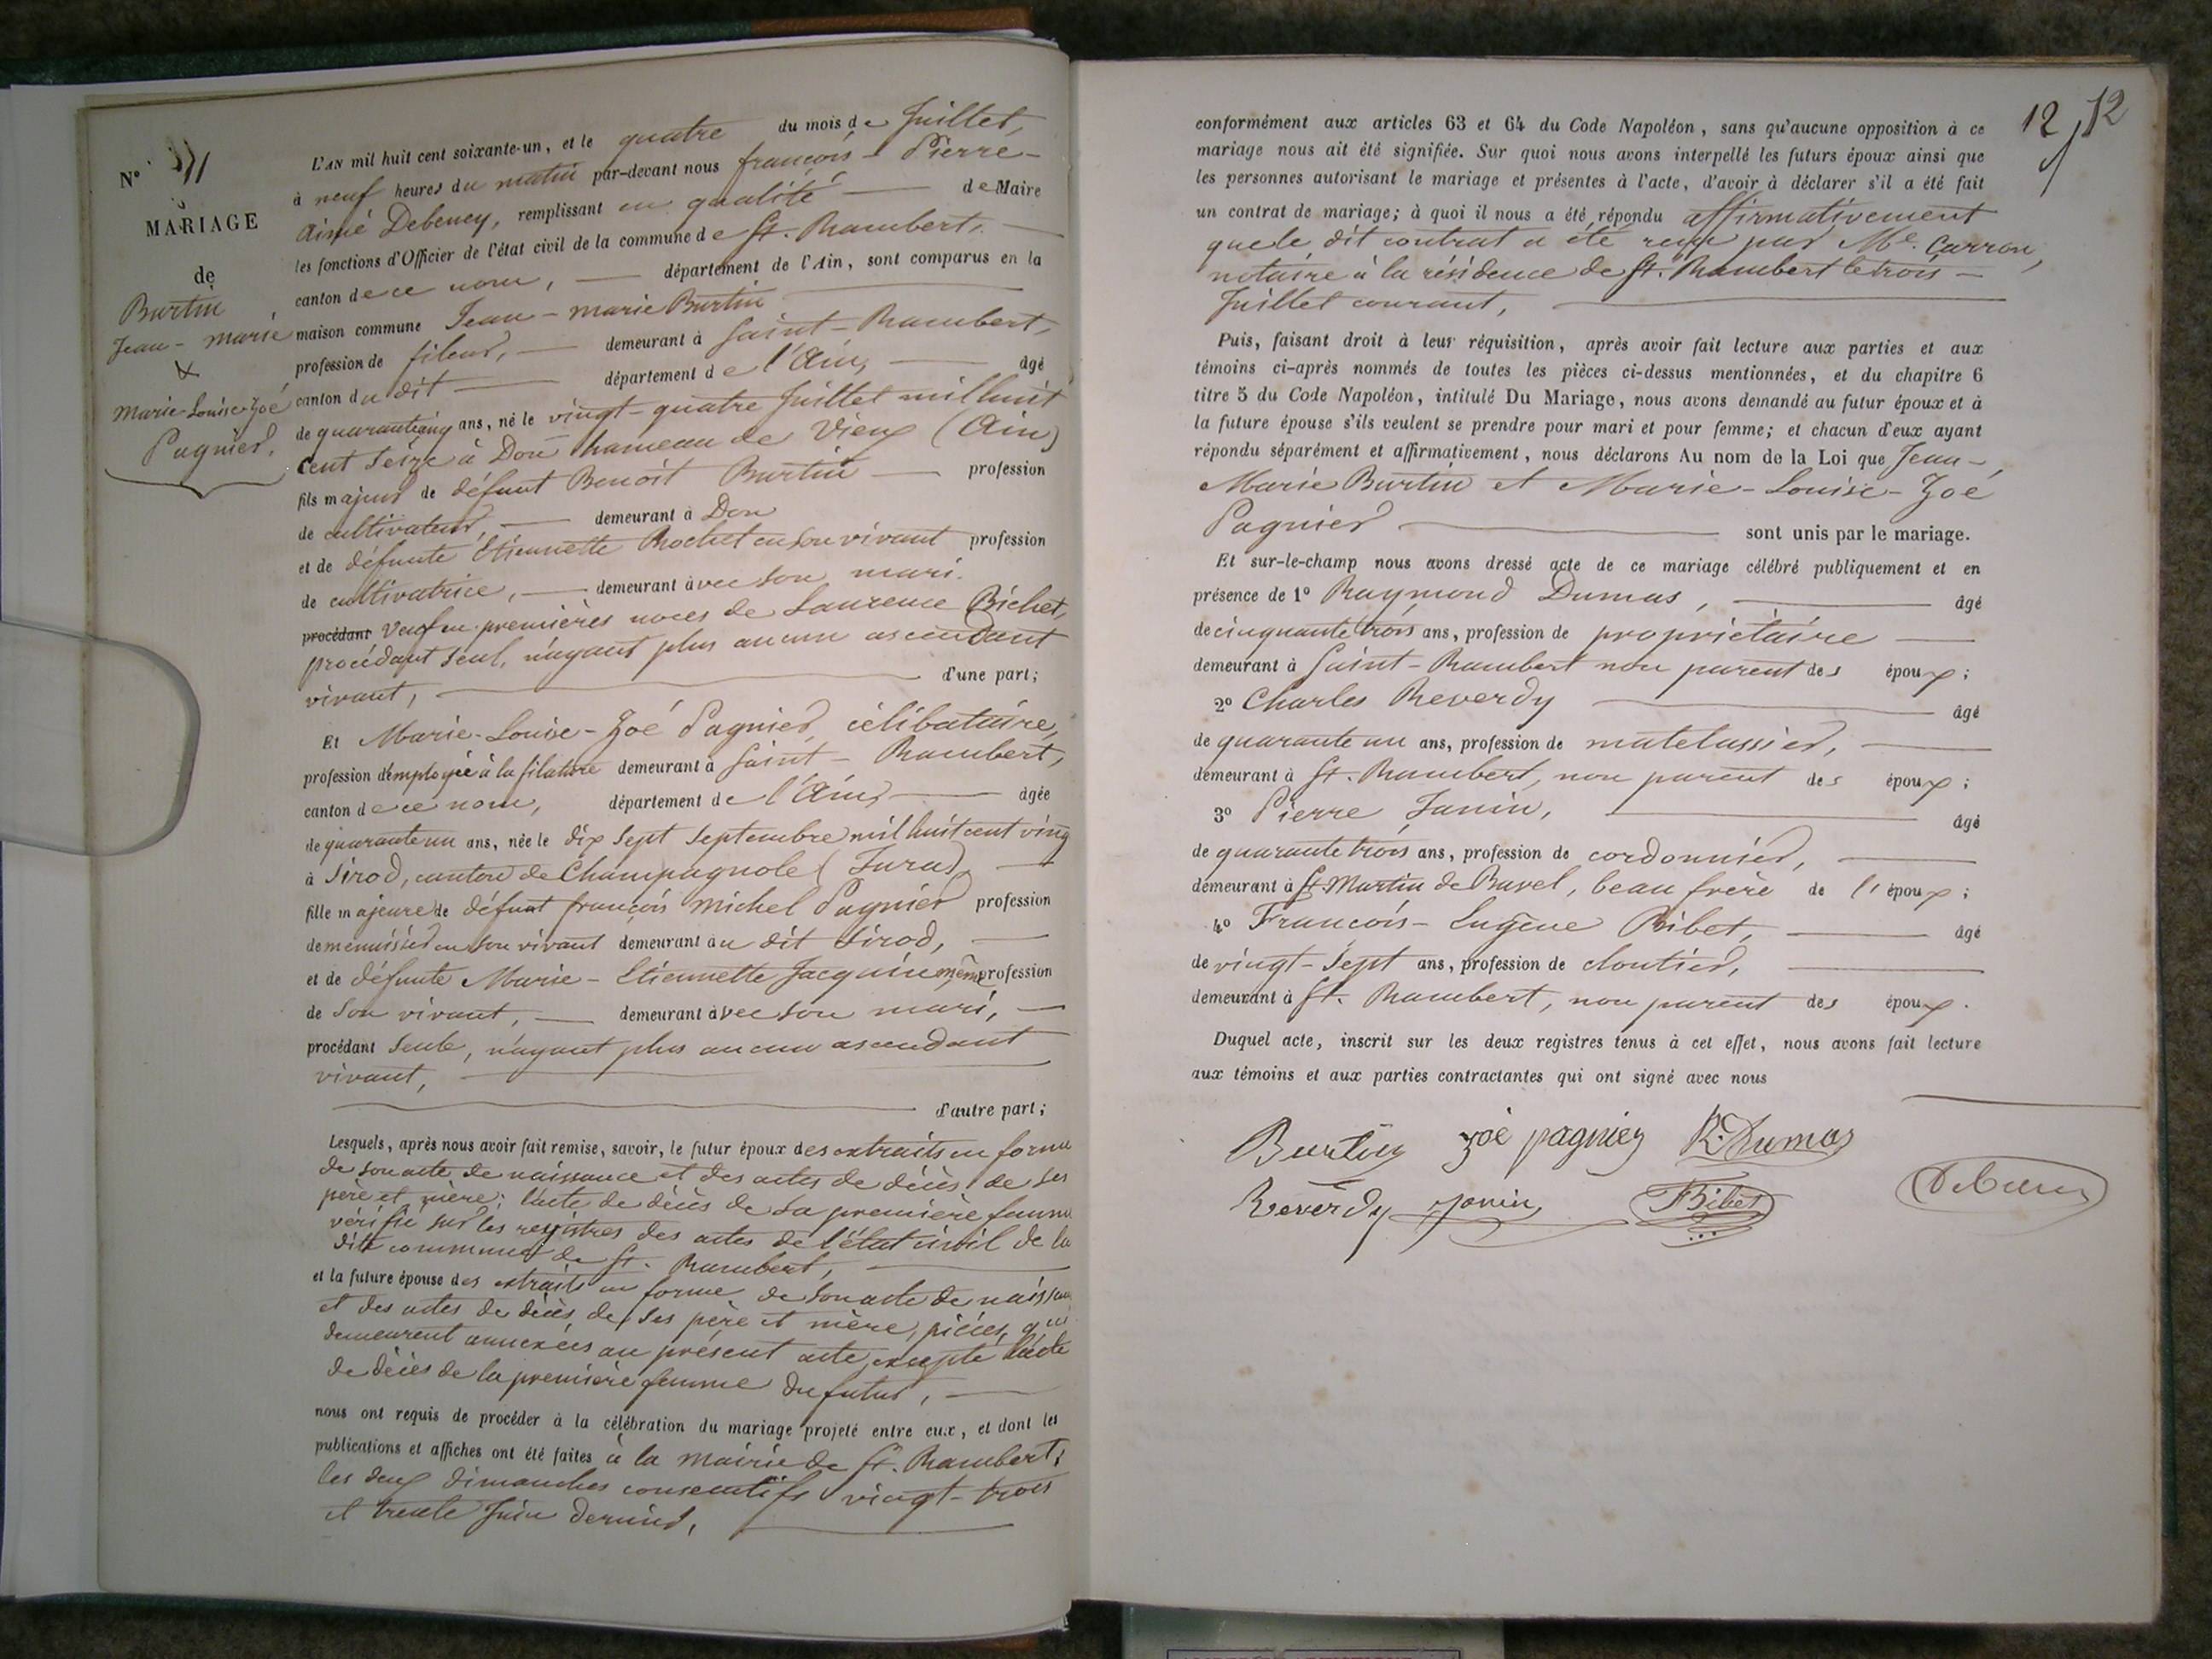 N° 11
MARIAGE
de
Burtin
Jean-marie
&
Marie-Louise-Zoé
Pagnier.
L'AN mil huit cent soixante-un, et le quatre du mois de Juillet,
à neuf heures du matin par-devant nous françois-Pierre-
Aimé Debeney, remplissant en qualité de Maire
les fonctions d'Officier de l'état civil de la commune de St. Rambert,
canton de ce nom, département de l'Ain, sont comparus en la
maison commune Jean-marie Burtin
profession de fileur, demeurant à Saint-Rambert,
canton du dit département de l'Ain, âgé
de quarantecinq ans, né le vingt-quatre Juillet mil huit
cent seize à Don hameau de Vieux (Ain)
fils majeur de défunt Benoit Burtin profession
de cultivateur, demeurant à Don
et de défunte Etiennette Rochet en son vivant profession
de cultivatrice, demeurant avec son mari.
procédant Veuf en premières noces de Laurence Bichet,
procédant seul, n'ayant plus aucun ascendant
vivant, d'une part;
Et Marie-Louise-Zoé Pagnier, célibataire,
profession d'employée à la filature demeurant à Saint-Rambert,
canton de ce nom, département de l'Ain, âgée
de quarante un ans, née le dix sept Septembre mil huit cent ving
à Sirod, canton de Champagnole (Jura)
fille majeure de défunt françois michel Pagnier profession
de menuisier en son vivant demeurant au dit Sirod,
et de défunte Marie-Etiennette Jacquin même profession
de son vivant, demeurant avec son mari,
procédant seule, n'ayant plus aucun ascendant
vivant,
d'autre part;
Lesquels, après nous avoir fait remise, savoir, le futur époux des extraits en forme
de son acte de naissance et des actes de décès de ses
père et mère; l'acte de décès de sa première femme
vérifié sur les registres des actes de l'état civil de la
dite commune de St. Rambert,
et la future épouse des extraits en forme de son acte de naissan
et des actes de décès de ses père et mère, pièces qui
demeurent annexées au présent acte, excepté l'acte
de décès de la première femme du futur,
nous ont requis de procéder à la célébration du mariage projeté entre eux, et dont les
publications et affiches ont été faites à la mairie de St. Rambert,
les deux dimanches consecutifs vingt-trois
et trente Juin dernier,
12 12
conformément aux articles 63 et 64 du Code Napoléon, sans qu'aucune opposition à ce
mariage nous ait été signifiée. Sur quoi nous avons interpellé les futurs époux ainsi que
les personnes autorisant le mariage et présentes à l'acte, d'avoir à déclarer s'il a été fait
un contrat de mariage; à quoi il nous a été répondu affirmativement
que le dit contrat a été reçu par Me. Carron,
notaire à la résidence de St. Rambert le trois
Juillet courant,
Puis, faisant droit à leur réquisition, après avoir fait lecture aux parties et aux
témoins ci-après nommés de toutes les pièces ci-dessus mentionnées, et du chapitre 6
titre 5 du Code Napoléon, intitulé Du Mariage, nous avons demandé au futur époux et à
la future épouse s'ils veulent se prendre pour mari et pour femme; et chacun d'eux ayant
répondu séparément et affirmativement, nous déclarons Au nom de la Loi que Jean-
Marie Burtin et Marie-Louise-Zoé
Pagnier sont unis par le mariage.
Et sur-le-champ nous avons dressé acte de ce mariage célébré publiquement et en
présence de 1° Raymond Dumas, âgé
de cinquante trois ans, profession de propriétaire
demeurant à Saint-Rambert non parent des époux;
2° Charles Reverdy âgé
de quarante un ans, profession de matelassier,
demeurant à St. Rambert, non parent des époux;
3° Pierre Janin, âgé
de quarante trois ans, profession de cordonnier,
demeurant à St Martin de Bavel, beau frère de l'époux;
4° François-Eugène Bibet, âgé
de vingt-sept ans, profession de cloutier,
demeurant à St. Rambert, non parent des époux.
Duquel acte, inscrit sur les deux registres tenus à cet effet, nous avons fait lecture
aux témoins et aux parties contractantes qui ont signé avec nous
Burtin zoé pagnier R. Dumas
Reverdy Janin Bibet Debeney